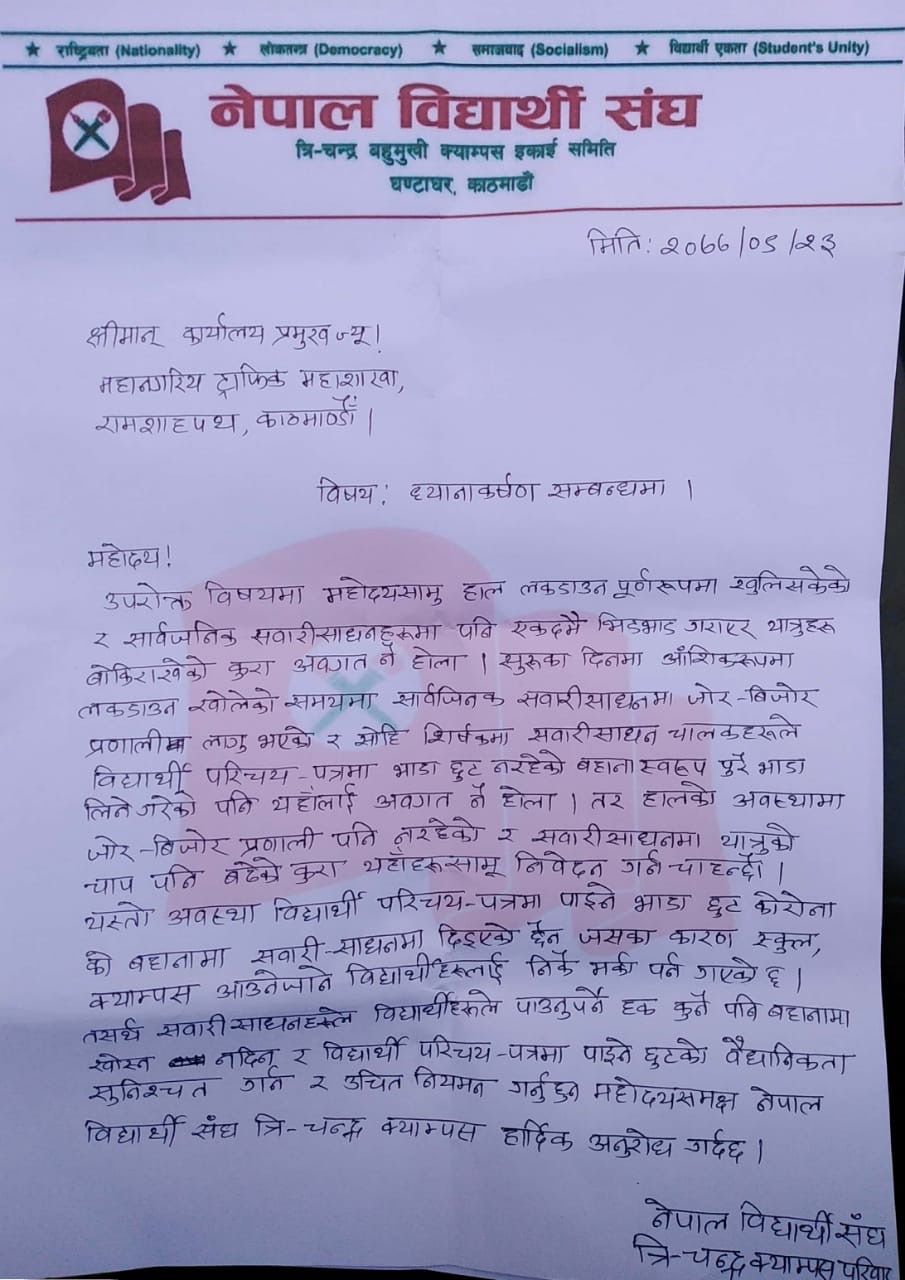 ★ राष्ट्रियता (Nationality) ★ लोकतन्त्र (Democracy) ★ समाजवाद (Socialism) ★ विद्यार्थी एकता (Student's Unity)
नेपाल विद्यार्थी संघ
त्रि-चन्द्र बहुमुखी क्याम्पस इकाई समिति
घण्टाघर, काठमाडौं
मिति: २०७७/०६/२३
श्रीमान् कार्यालय प्रमुख ज्यू!
महानगरिय ट्राफिक महाशाखा,
रामशाहपथ, काठमाण्डौं।
विषय: ध्यानाकर्षण सम्बन्धमा ।
महोदय!
उपरोक्त विषयमा महोदयसामु हाल लकडाउन पूर्णरूपमा खुलिसकेको
र सार्वजनिक सवारीसाधनहरूमा पनि एकदमै भिडभाड गराएर यात्रुहरू
बोकिराखेको कुरा अवगत नै होला । सुरुका दिनमा आंशिकरूपमा
लकडाउन खोलेको समयमा सार्वजनिक सवारीसाधनमा जोर-बिजोर
प्रणाली लागु भएको र सोहि शिर्षकमा सवारीसाधन चालकहरूले
विद्यार्थी परिचय-पत्रमा भाडा छुट नरहेको बहाना स्वरूप पुरै भाडा
लिने गरेको पनि यहाँलाई अवगत नै होला । तर हालको अवस्थामा
जोर-बिजोर प्रणाली पनि नरहेको र सवारीसाधनमा यात्रुको
चाप पनि बढेको कुरा यहाँहरूसामू निवेदन गर्न चाहन्छौं ।
यस्तो अवस्था विद्यार्थी परिचय-पत्रमा पाईने भाडा छुट कोरोना
को बहानामा सवारी-साधनमा दिइएको छैन जसका कारण स्कुल,
क्याम्पस आउनेजाने विद्यार्थीहरूलाई निकै मर्का पर्न गएको छ ।
तसर्थ सवारीसाधनहरूले विद्यार्थीहरूले पाउनुपर्ने हक कुनै पनि बहानामा
खोस्न नदिन र विद्यार्थी परिचय-पत्रमा पाईने छुटको वैद्यानिकता
सुनिश्चत गर्न र उचित नियमन गर्नुहुन महोदयसमक्ष नेपाल
विद्यार्थी संघ त्रि-चन्द्र क्याम्पस हार्दिक अनुरोध गर्दछ ।
नेपाल विद्यार्थी संघ
त्रि-चन्द्र क्याम्पस परिवार